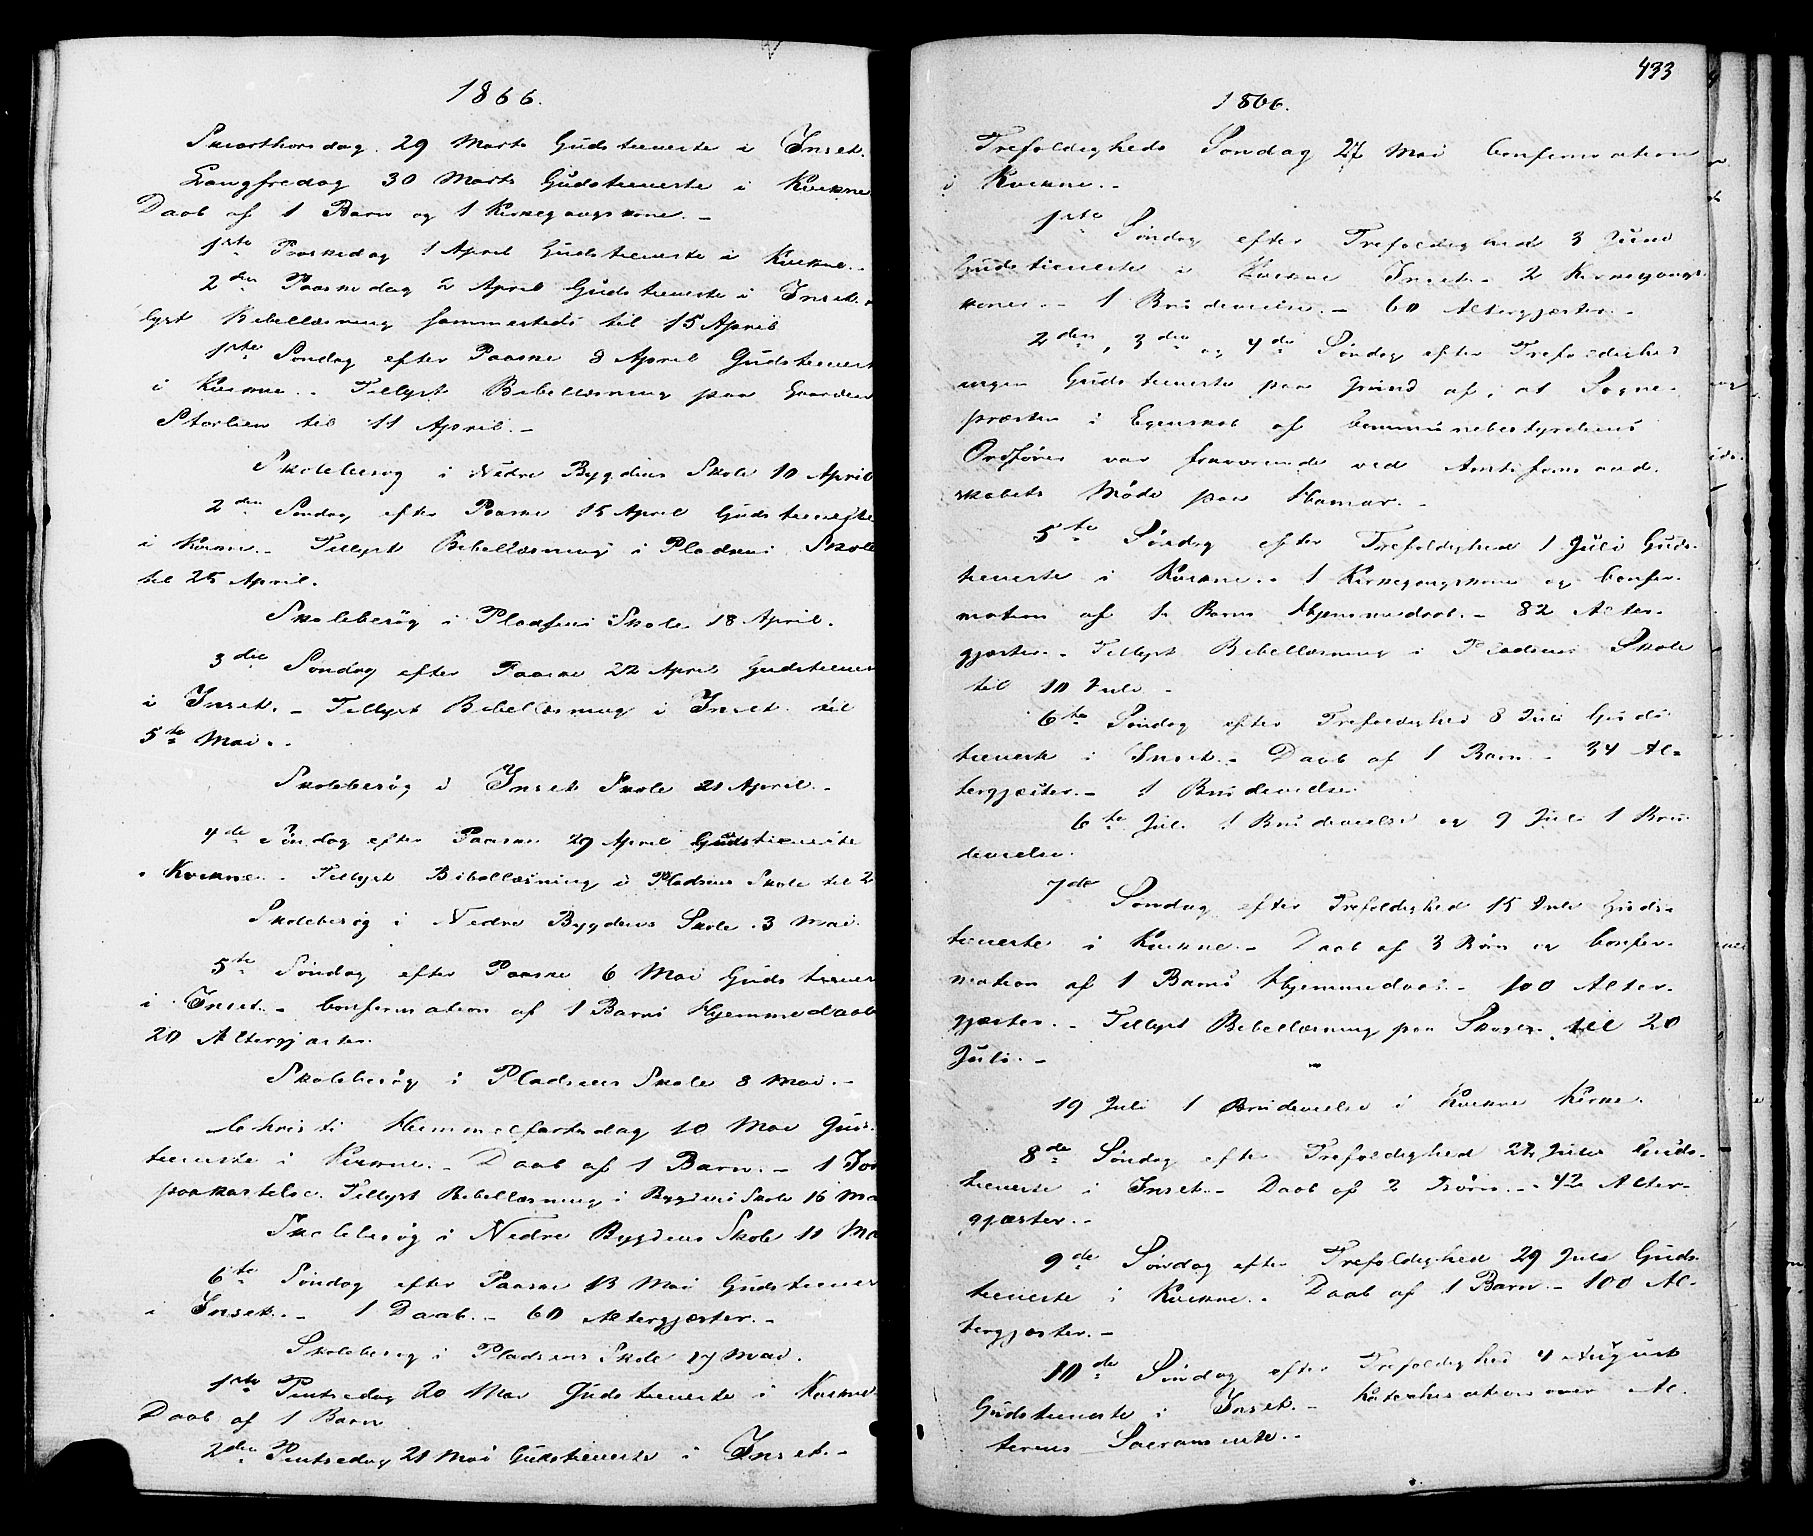 1866.
Skiærthorsdag 29 Marts Gudstieneste i Inset.
Langfredag 30 Marts Gudstieneste i Kvikne
Daab af 1 Barn og 1 Kirkegangskone. -
1ste Paaskedag 1 April Gudstieneste i Kvikne. -
2den Paaskedag 2 April Gudstieneste i Inset. -
lyst Bibellæsning sammesteds til 15 April
1ste Søndag efter Paaske 8 April Gudstienest
i Kvikne. - Tillyst Bibellæsning paa Gaarden
Storlien til 11 April. -
Skolebesøg i Nedre Bygdens Skole 10 April
2den Søndag efter Paaske 15 April Gudstieneste
i Kvikne. - Tillyst Bibellæsning i Pladsens Skole
til 25 April.
Skolebesøg i Pladsens Skole 18 April.
3die Søndag efter Paaske 22 April Gudstienes
i Inset. - Tillyst Bibellæsning i Inset til
5te Mai. -
Skolebesøg i Inset Skole 21 April. -
4de Søndag efter Paaske 29 April Gudstieneste
i Kvikne. - Tillyst Bibellæsning i Pladsens Skole til 2
Skolebesøg i Nedre Bygdens Skole 3 Mai.
5te Søndag efter Paaske 6 Mai Gudstienes
i Inset. - Confirmation af 1 Barns Hjemmedaab
20 Altergjæster.
Skolebesøg i Pladsens Skole 8 Mai. -
Christi Himmelfartsdag 10 Mai Guds-
tieneste i Kvikne. - Daab af 1 Barn. - 1 Jor
paakastelse. Tillyst Bibellæsning i Bygdens Skole 16 Ma
Skolebesøg i Nedre Bygdens Skole 11 Ma
6te Søndag efter Paaske 13 Mai Gudstienes
i Inset. - 1 Daab. - 60 Altergjæster. -
Skolebesøg i Pladsens Skole 17 Mai.
1ste Pintsedag 20 Mai Gudstieneste i Kvikne
Daab af 1 Barn
2den Pintsedag 21 Mai Gudstieneste i Inset. -
433
1866.
Trefoldigheds Søndag 27 Mai Confirmation
i Kvikne. -
1ste Søndag efter Trefoldighed 3 Juni
Gudstieneste i Inset. - 2 Kirkegangs-
koner. - 1 Brudevielse. - 60 Altergjæster. -
2den, 3die og 4de Søndag efter Trefoldighed
ingen Gudstieneste paa Grund af, at Sogne-
præsten i Egenskab af Communebestyrelsens
Ordfører var fraværende ved Amtsformand-
skabets Møde paa Hamar. -
5te Søndag efter Trefoldighed 1 Juli Guds-
tieneste i Kvikne. - 1 Kirkegangskone og Confir-
mation af 1 Barns Hjemmedaab. - 82 Alter-
gjæster. - Tillyst Bibellæsning i Pladsens Skole
til 10 Juli. -
6te Søndag efter Trefoldighed 8 Juli Guds-
tieneste i Inset. - Daab af 1 Barn. - 34 Al-
tergjæster. - 1 Brudevielse
6te Juli 1 Brudevielse og 9 Juli 1 Bru-
devielse.
7de Søndag efter Trefoldighed 15 Juli Guds-
tieneste i Kvikne. - Daab af 3 Børn og Confir-
mation af 1 Barns Hjemmedaab. - 100 Alter-
gjæster. - Tillyst Bibellæsning paa til 20
Juli. -
19 Juli 1 Brudevielse i Kvikne Kirke.
8de Søndag efter Trefoldighed 22 Juli Guds-
tieneste i Inset. - Daab af 2 Børn. - 42 Alter-
gjæster. -
9de Søndag efter Trefoldighed 29 Juli Guds-
tieneste i Kvikne. - Daab af 1 Barn. - 100 Al-
tergjæster. -
10de Søndag efter Trefoldighed 4 August
Gudstieneste i Inset. - Katechisation over Al-
terens Sacramente. -